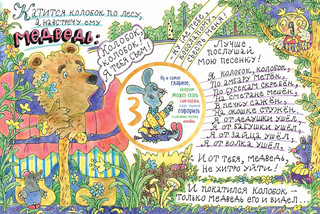 Катится колобок по лесу,
а навстречу ему
медведь:
- Колобок,
колобок,
я тебя съем!
3
Ну и самое
главное,
говорить
- Лучше
послушай
мою песенку!
Я колобок, колобок,
По амбару метён,
По сусекам скребён,
На сметане мешён,
В печку сажён,
На окошке стужён.
Я от дедушки ушёл,
Я от бабушки ушёл,
Я от зайца ушёл,
Я от волка ушёл.
И от тебя, медведь,
не хитро уйти!
И покатился колобок -
только медведь его и видел...